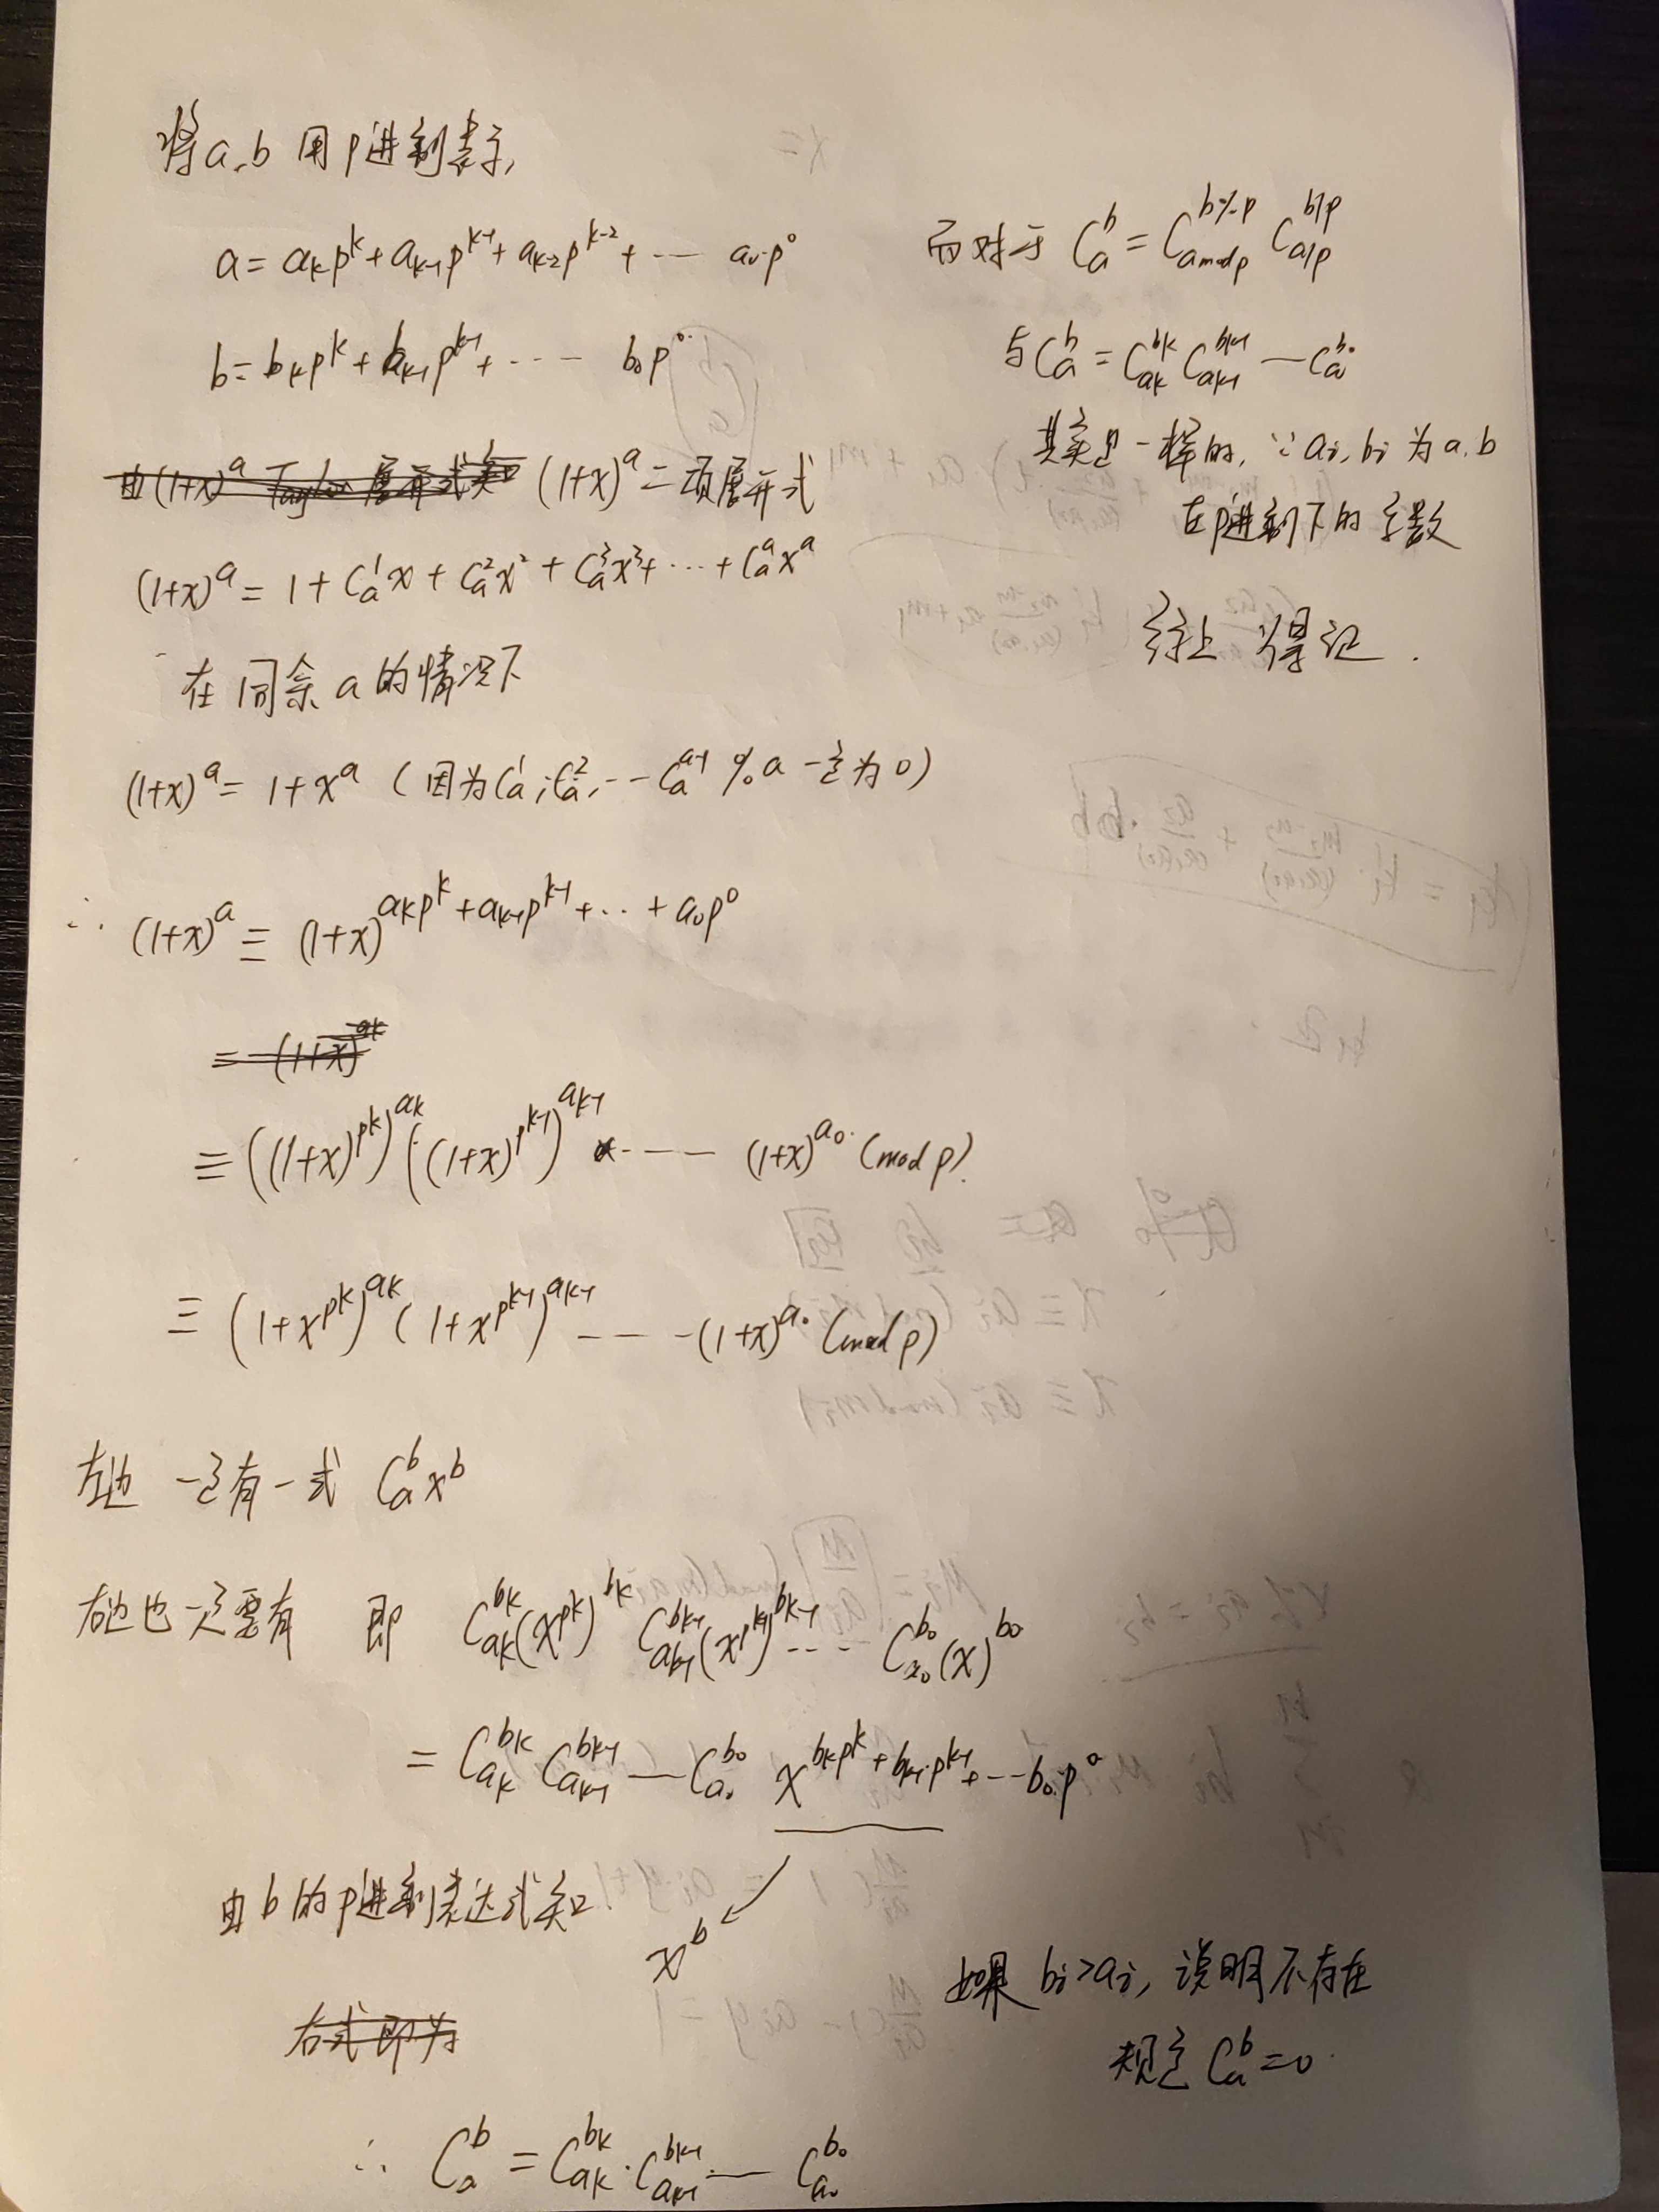 将a,b 用p进制表示,
a = a_k p^k + a_{k-1} p^{k-1} + a_{k-2} p^{k-2} + ⋯ a_0·p^0
b = b_k p^k + b_{k-1} p^{k-1} + ⋯ b_0 p^0
由(1+x)^a Taylor 展开式知 (1+x)^a 二项展开式
(1+x)^a = 1 + C_a^1 x + C_a^2 x^2 + C_a^3 x^3 + ⋯ + C_a^a x^a
在同余a的情况下
(1+x)^a = 1 + x^a (因为C_a^1, C_a^2, ⋯ C_a^{a-1} % a 一定为0)
∴ (1+x)^a ≡ (1+x)^{a_k p^k + a_{k-1} p^{k-1} + ⋯ + a_0 p^0}
= (1+x)^{a_k}
≡ ((1+x)^{p^k})^{a_k} ((1+x)^{p^{k-1}})^{a_{k-1}} ⋯ (1+x)^{a_0} (mod p).
≡ (1+x^{p^k})^{a_k} (1+x^{p^{k-1}})^{a_{k-1}} ⋯ (1+x)^{a_0} (mod p)
左边 一定有一式 C_a^b x^b
右边也一定要有 即 C_{a_k}^{b_k} (x^{p^k})^{b_k} C_{a_{k-1}}^{b_{k-1}} (x^{p^{k-1}})^{b_{k-1}} ⋯ C_{a_0}^{b_0} (x)^{b_0}
= C_{a_k}^{b_k} C_{a_{k-1}}^{b_{k-1}} — C_{a_0}^{b_0} x^{b_k p^k + b_{k-1}·p^{k-1} + ⋯ b_0·p^0}
由b的p进制表达式知
x^b
右式即为
∴ C_a^b = C_{a_k}^{b_k} · C_{a_{k-1}}^{b_{k-1}} — C_{a_0}^{b_0}
而对于 C_a^b = C_{a mod p}^{b % p} C_{a/p}^{b/p}
与 C_a^b = C_{a_k}^{b_k} C_{a_{k-1}}^{b_{k-1}} — C_{a_0}^{b_0}
其实是一样的, ∵ a_i, b_i 为 a, b
在p进制下的系数
综上 得证.
如果 b_i > a_i, 说明不存在
规定 C_a^b = 0.